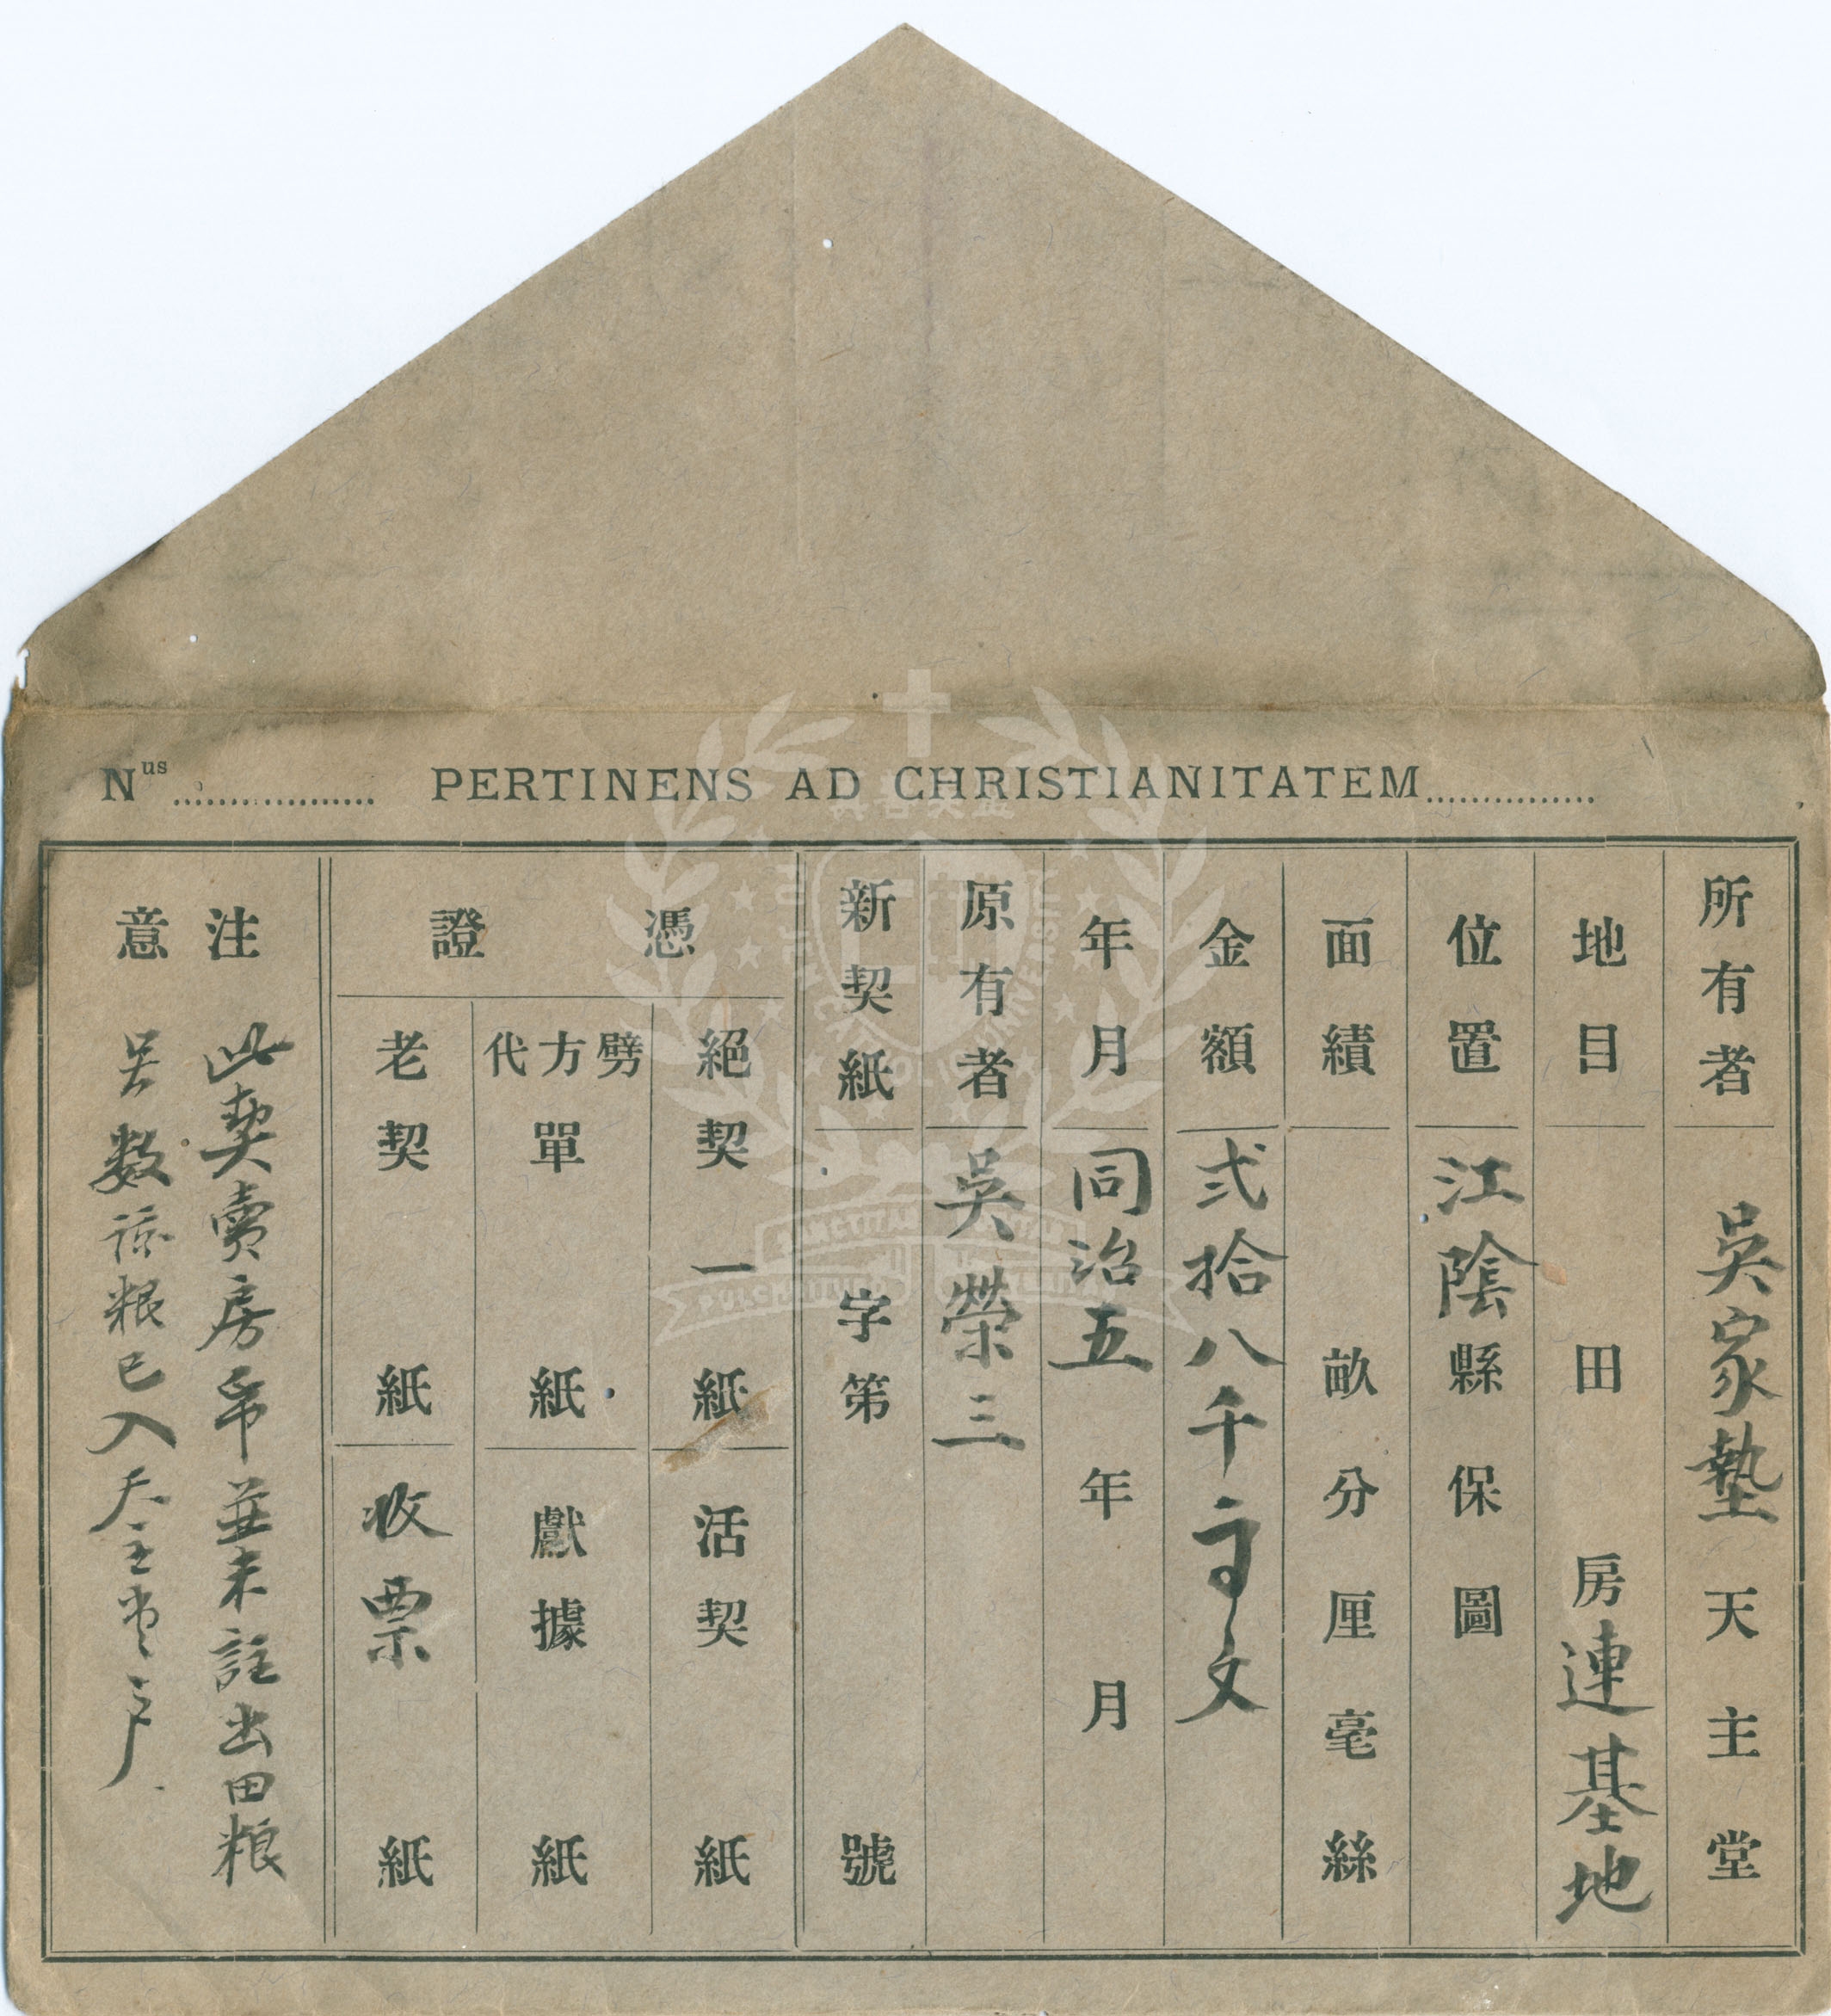 Nus .................. PERTINENS AD CHRISTIANITATEM ...............
所有者 吳家墊天主堂
地目 田 房連基地
位置 江陰縣 保 圖
面績 畝 分 厘 毫 絲
金額 弍拾八千 文
年月 同治五年 月
原有者 吳榮三
新契紙 字第 號
憑證
絕契 一紙
活契 紙
劈方代單 紙
獻據 紙
老契 紙
收票 紙
注意
此契賣房 並未註出田粮
数 粮已入天主堂户